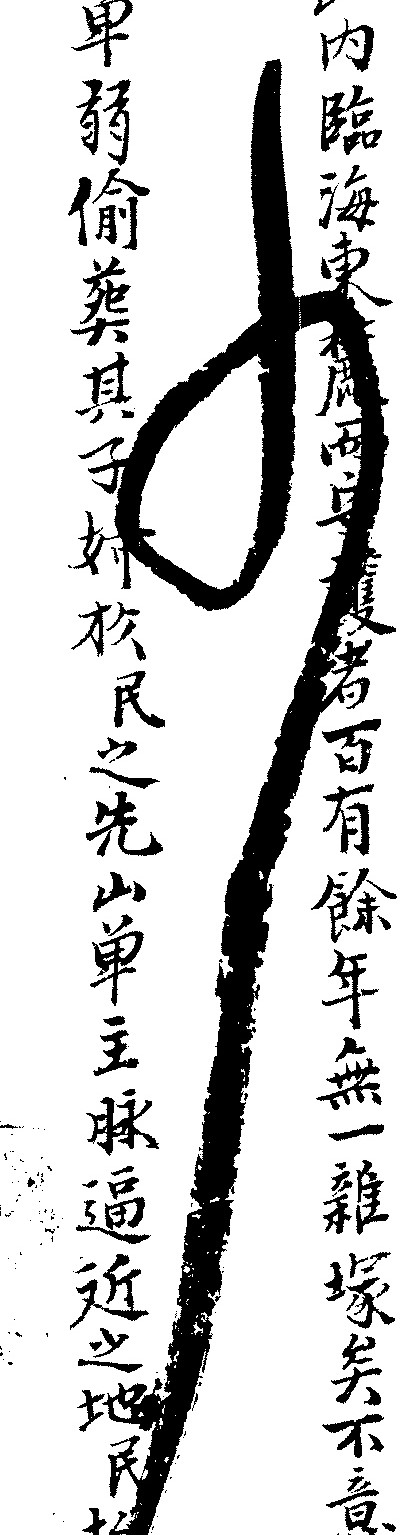 内臨海東麓而守護者百有餘年無一雜塚矣不意
卑弱偷葬其子姉於民之先山单主脉逼近之地民